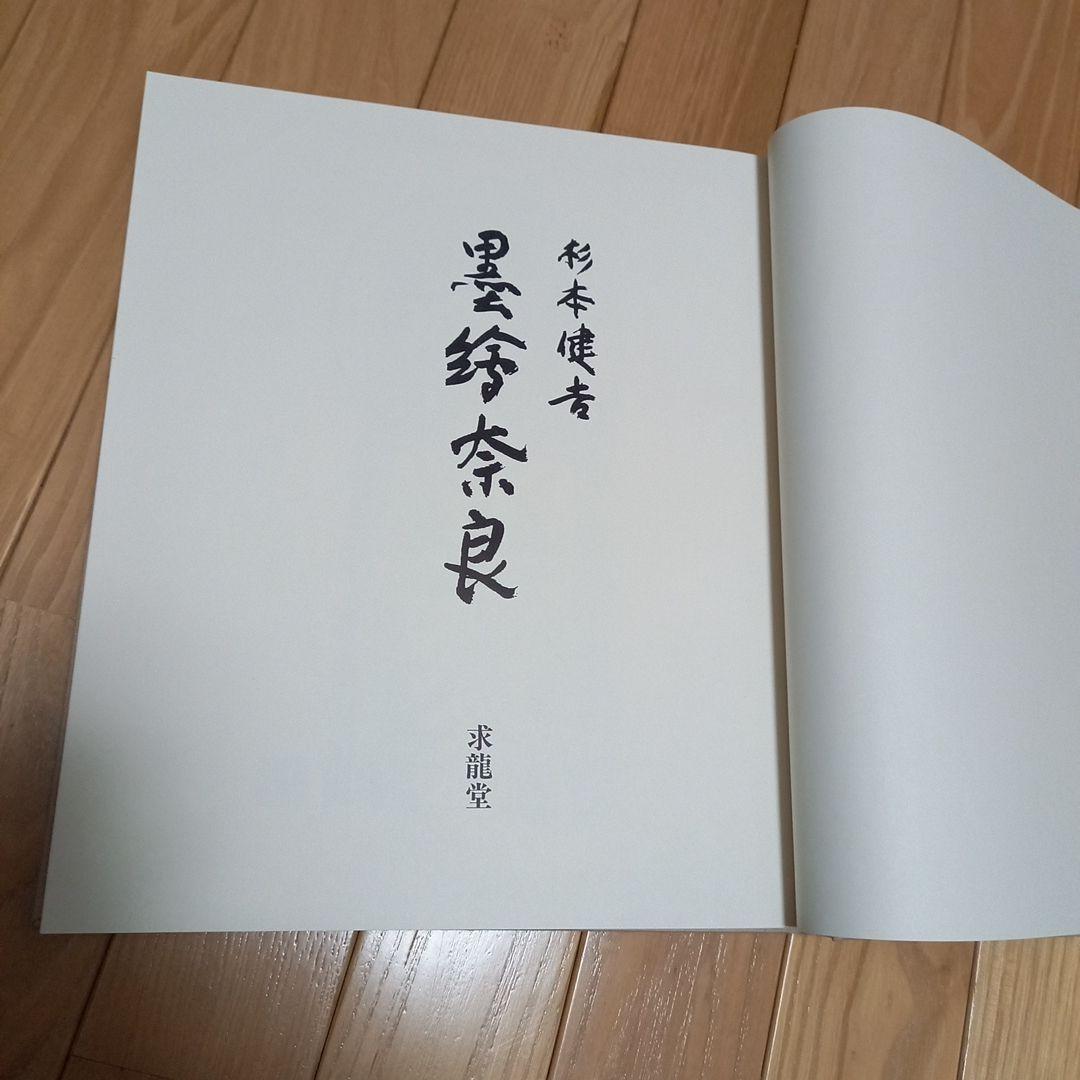 杉本健吉
墨繪奈良
求龍堂